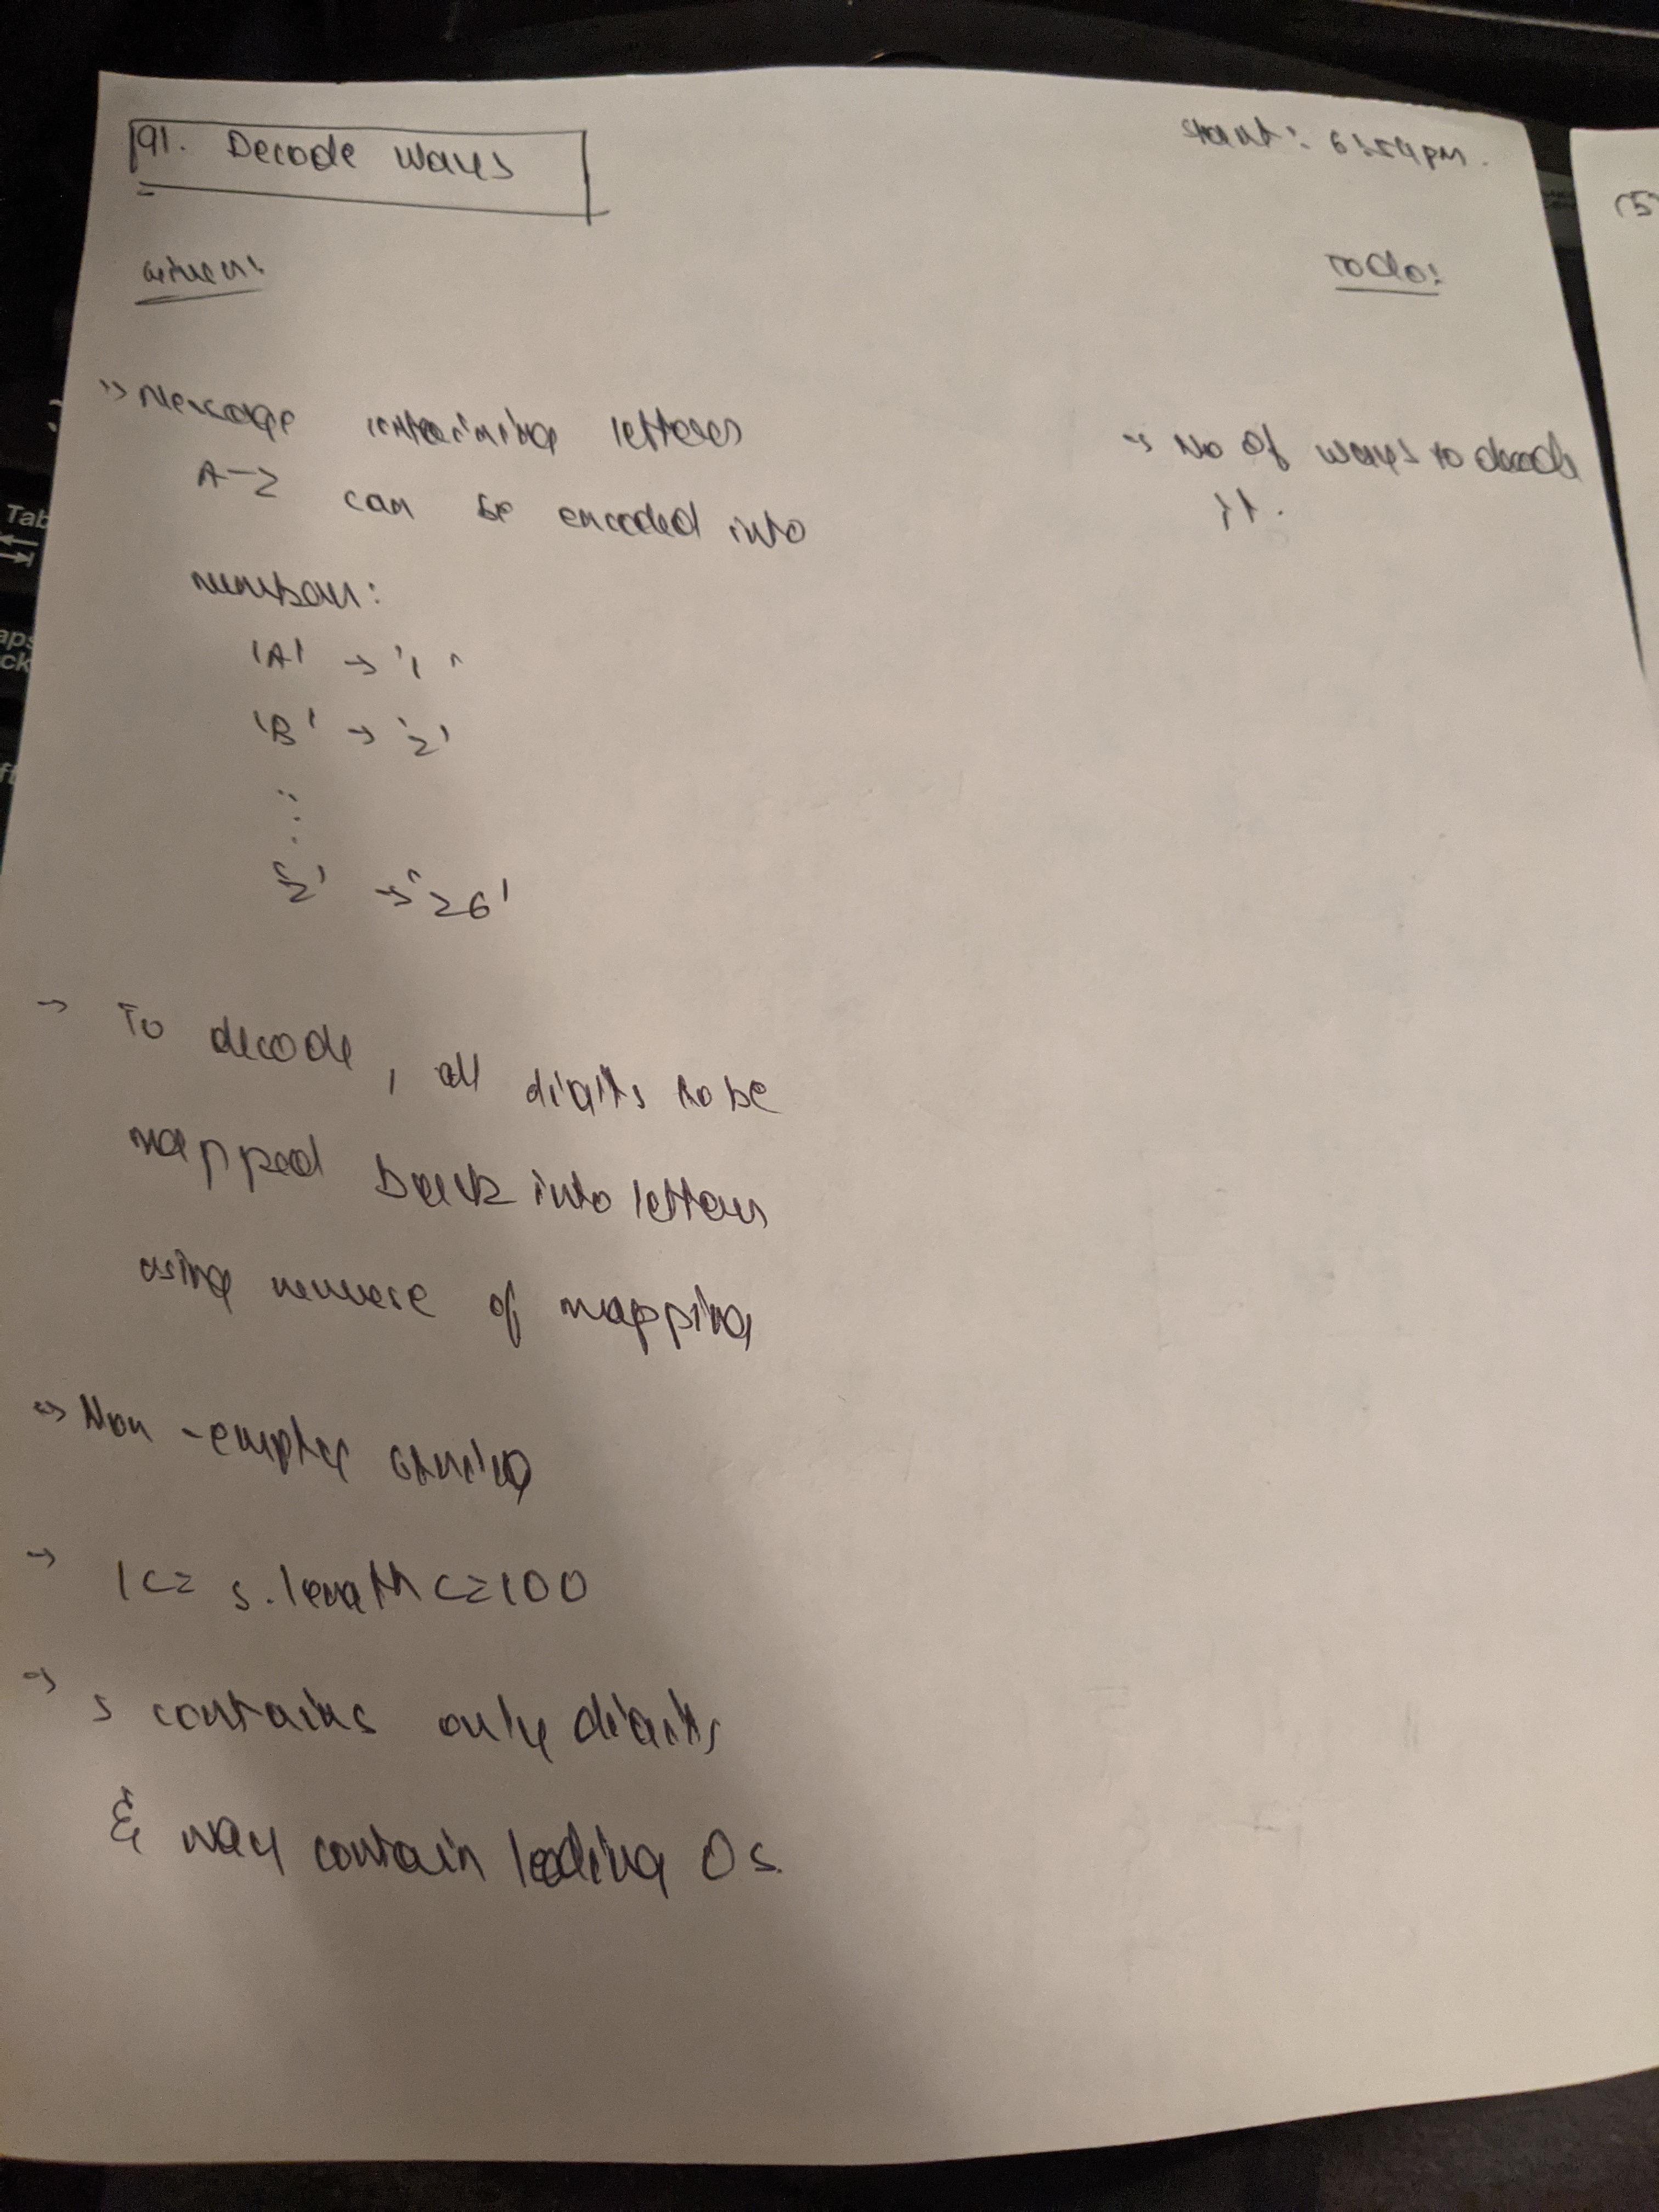 91. Decode Ways
Start: 6:54pm.
Given:
To do:
→ Message containing letters
A-Z can be encoded into
numbers:
'A' → '1'
'B' → '2'
:
'Z' → '26'
→ No of ways to decode
it.
→ To decode, all digits to be
mapped back into letters
using reverse of mapping
→ Non-empty string
→ 1<= s.length <=100
→ s contains only digits
& may contain leading 0s.
(5
Tab
aps
ck